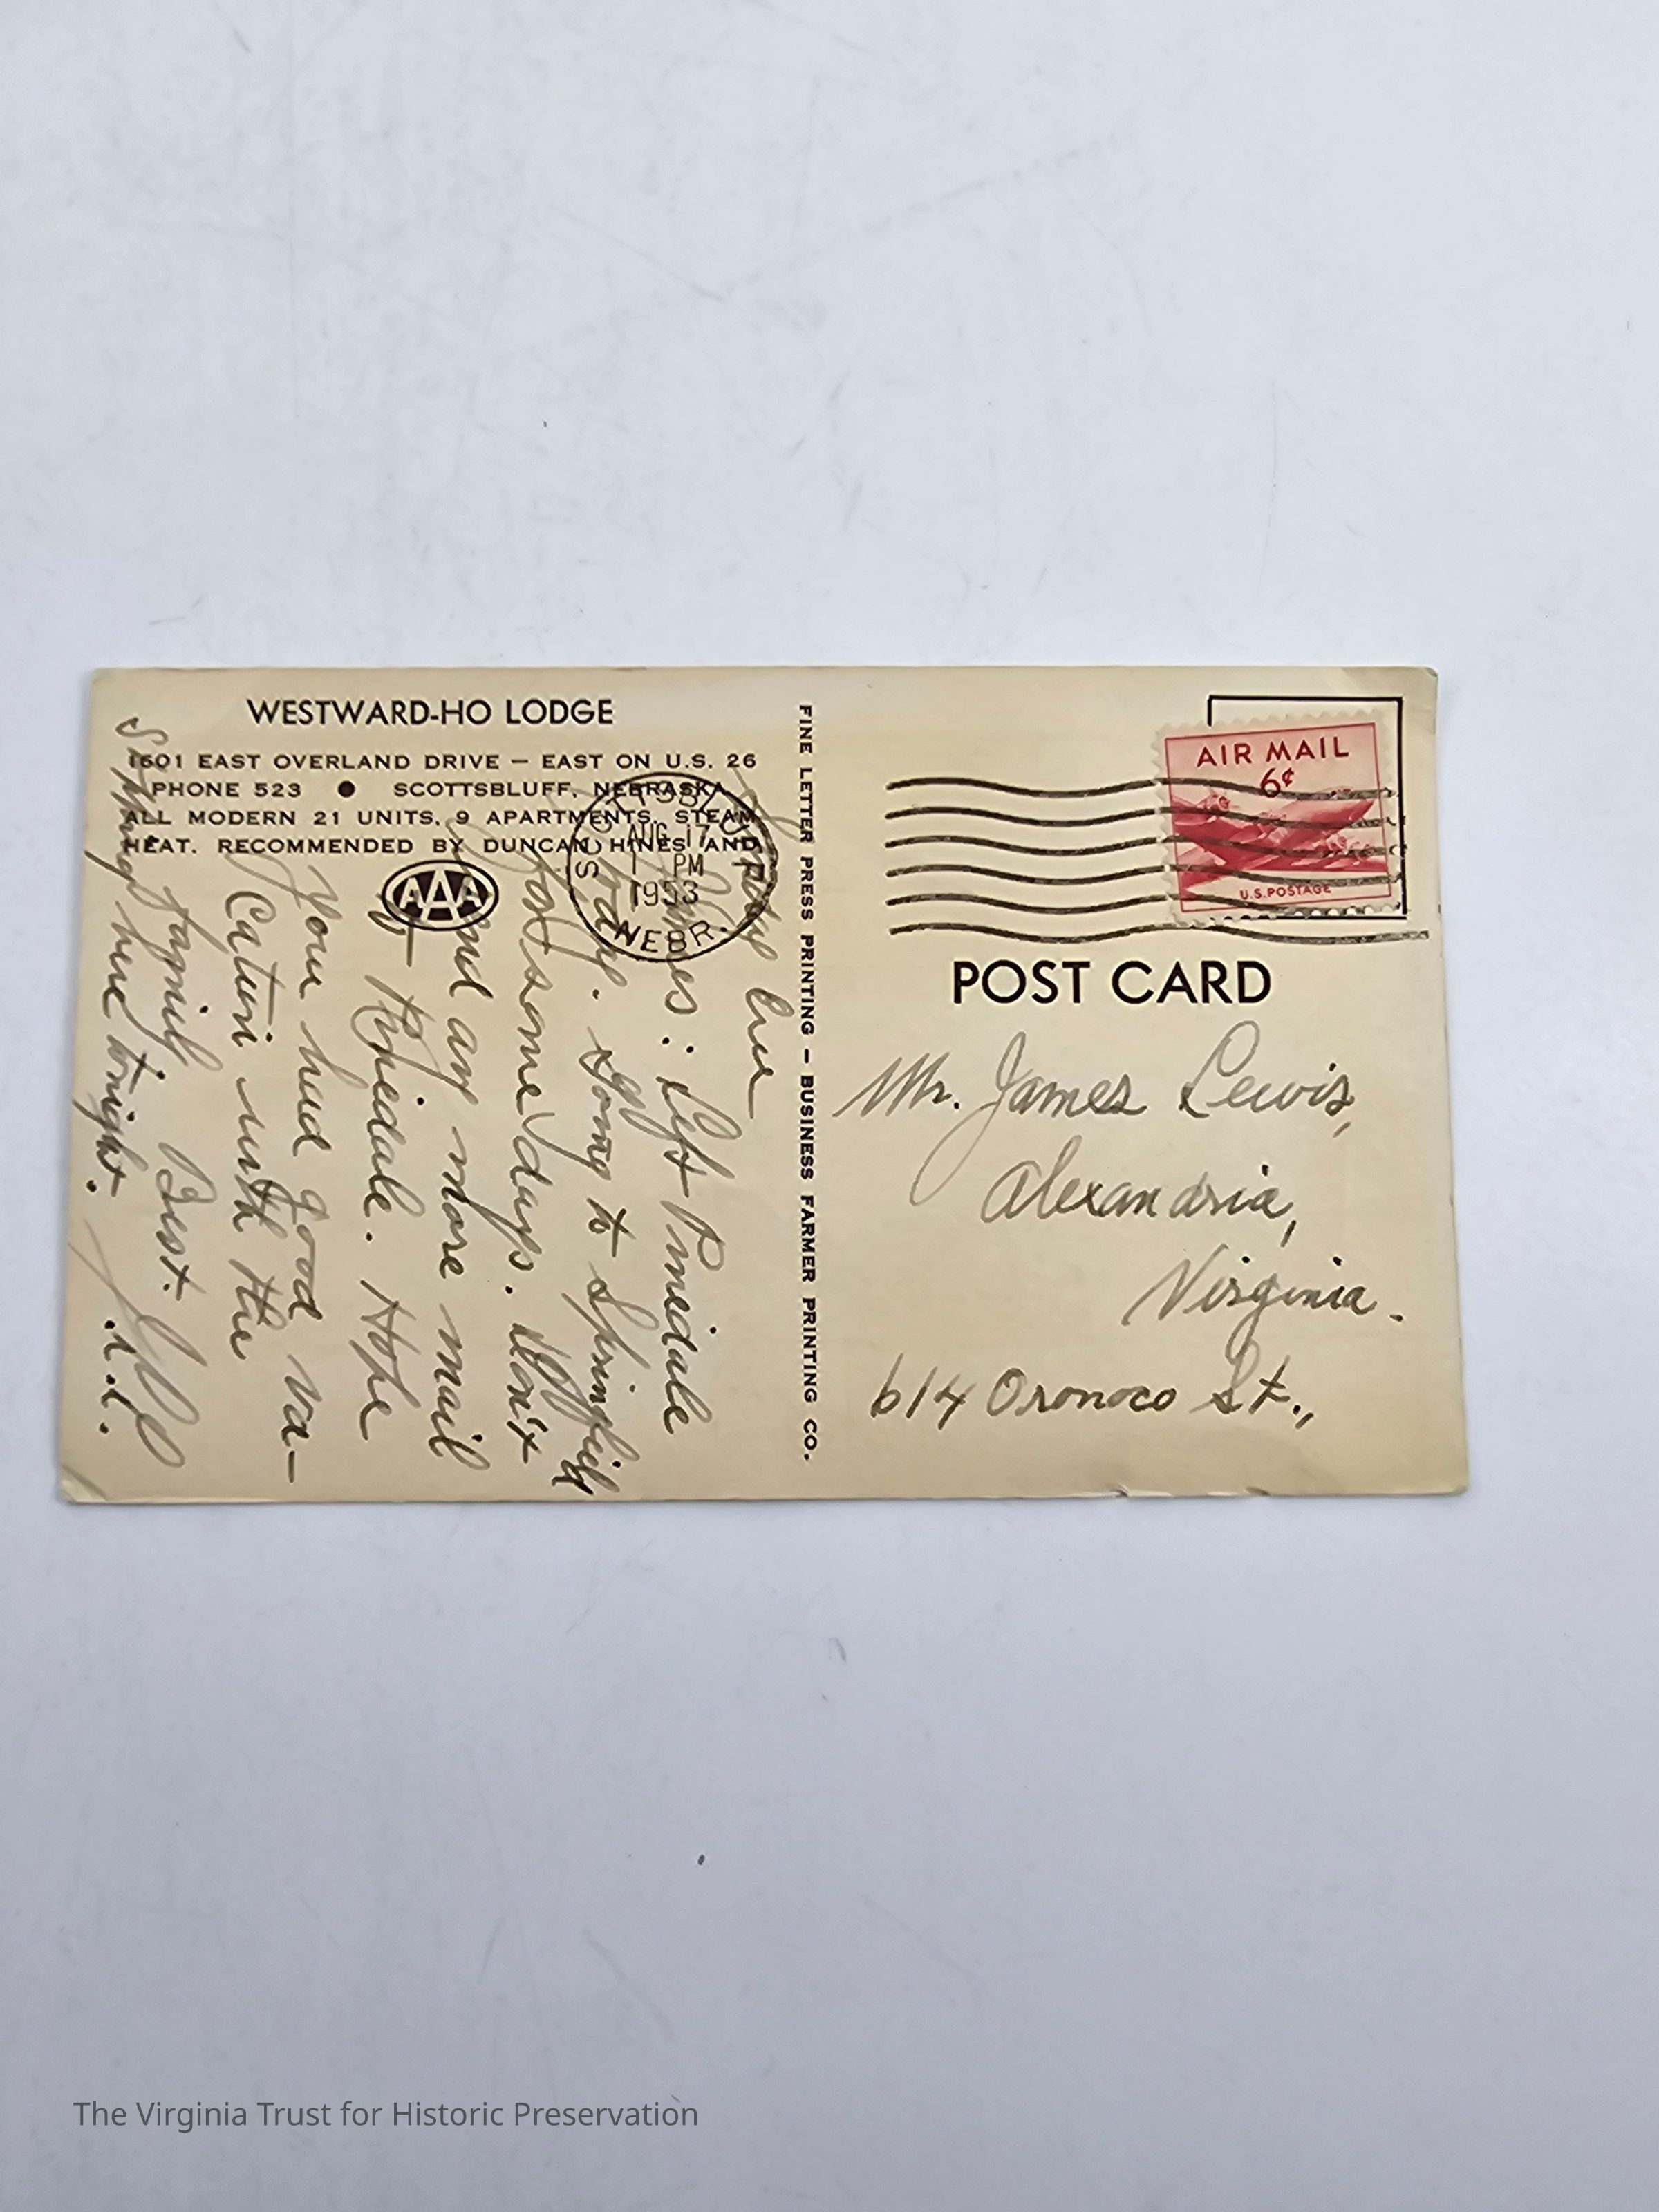 WESTWARD-HO LODGE
1601 EAST OVERLAND DRIVE — EAST ON U.S. 26
PHONE 523 ● SCOTTSBLUFF, NEBRASKA
ALL MODERN 21 UNITS, 9 APARTMENTS. STEAM
HEAT. RECOMMENDED BY DUNCAN HINES AND
AAA
SCOTTSBLUFF
AUG 17
1 PM
1953
NEBR.
Sunday Eve
James: Left Pinedale
today. Going to Springfield
for some days. Don't
send any more mail
to Pinedale. Hope
you had good va-
cation with the
family. Best.
Stopping here tonight.
FINE LETTER PRESS PRINTING — BUSINESS FARMER PRINTING CO.
AIR MAIL
6¢
U.S. POSTAGE
POST CARD
Mr. James Lewis,
Alexandria,
Virginia.
614 Oronoco St.,
The Virginia Trust for Historic Preservation